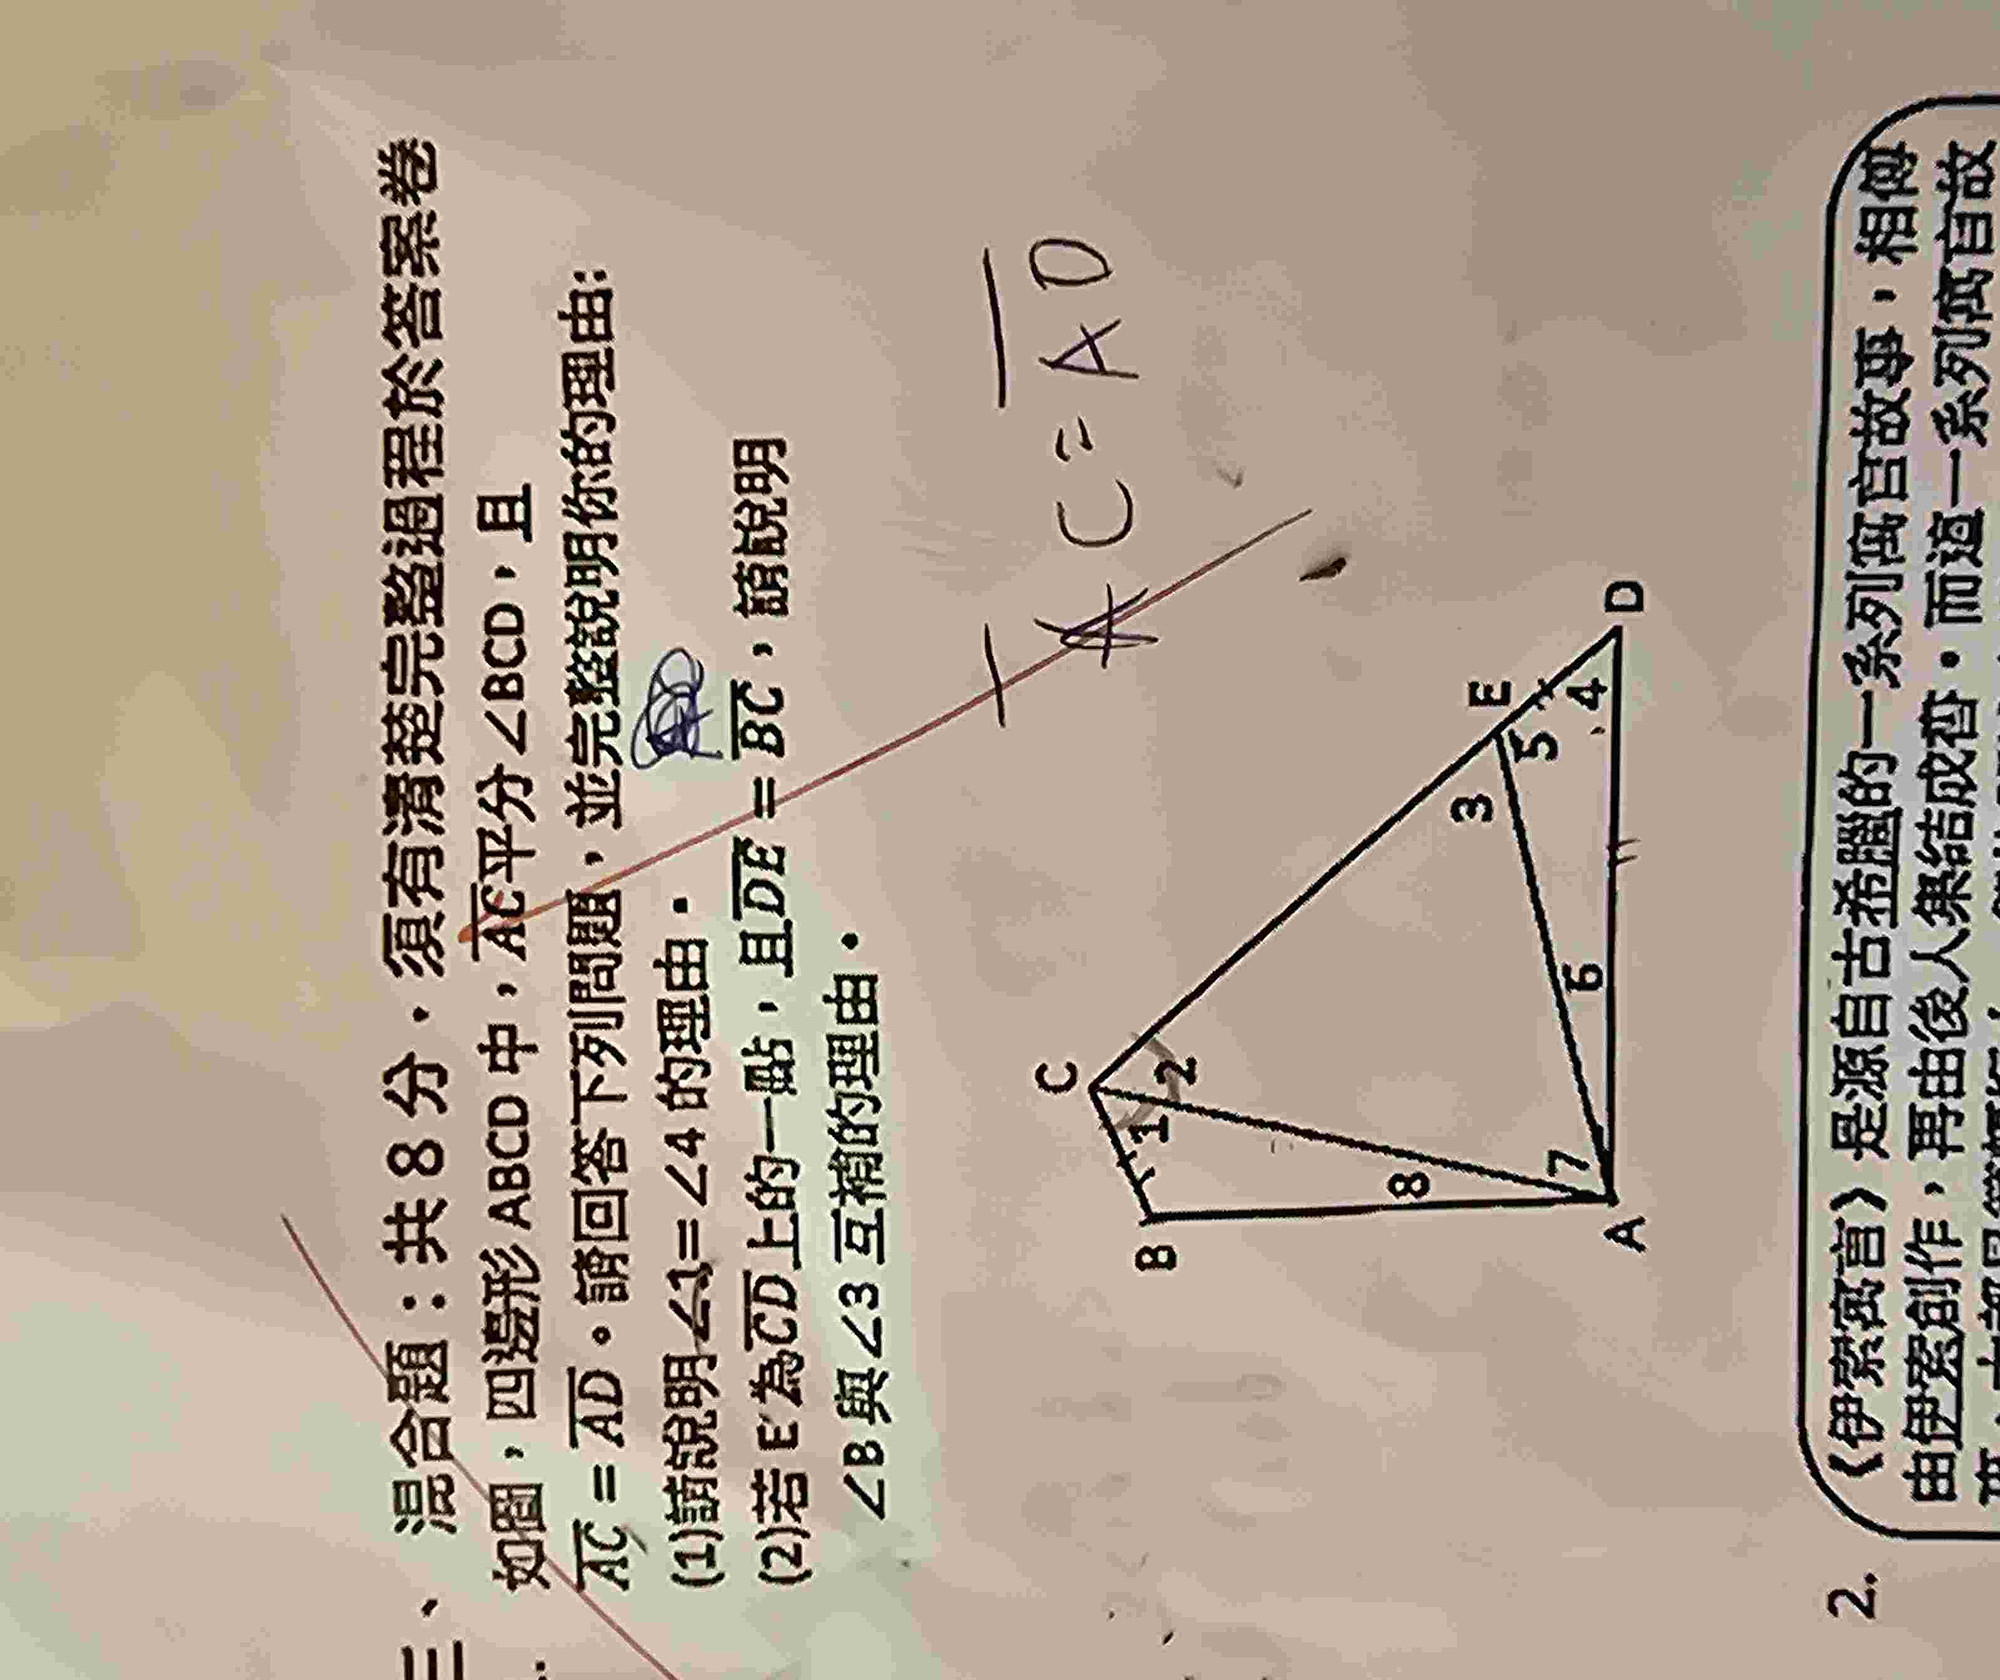 三、混合題：共 8 分．須有清楚完整過程於答案卷
如圖，四邊形 ABCD 中，AC平分∠BCD，且
AC = AD。請回答下列問題，並完整說明你的理由:
(1)請說明∠1=∠4 的理由．
(2)若 E 為CD上的一點，且DE = BC，請說明
∠B 與∠3 互補的理由．
AC = AD
C
B
1
2
E
3
5
8
4
7
6
A
D
2.
《伊索寓言》是源自古希臘的一系列寓言故事，相傳
由伊索創作，再由後人集結成書．而這一系列寓言故